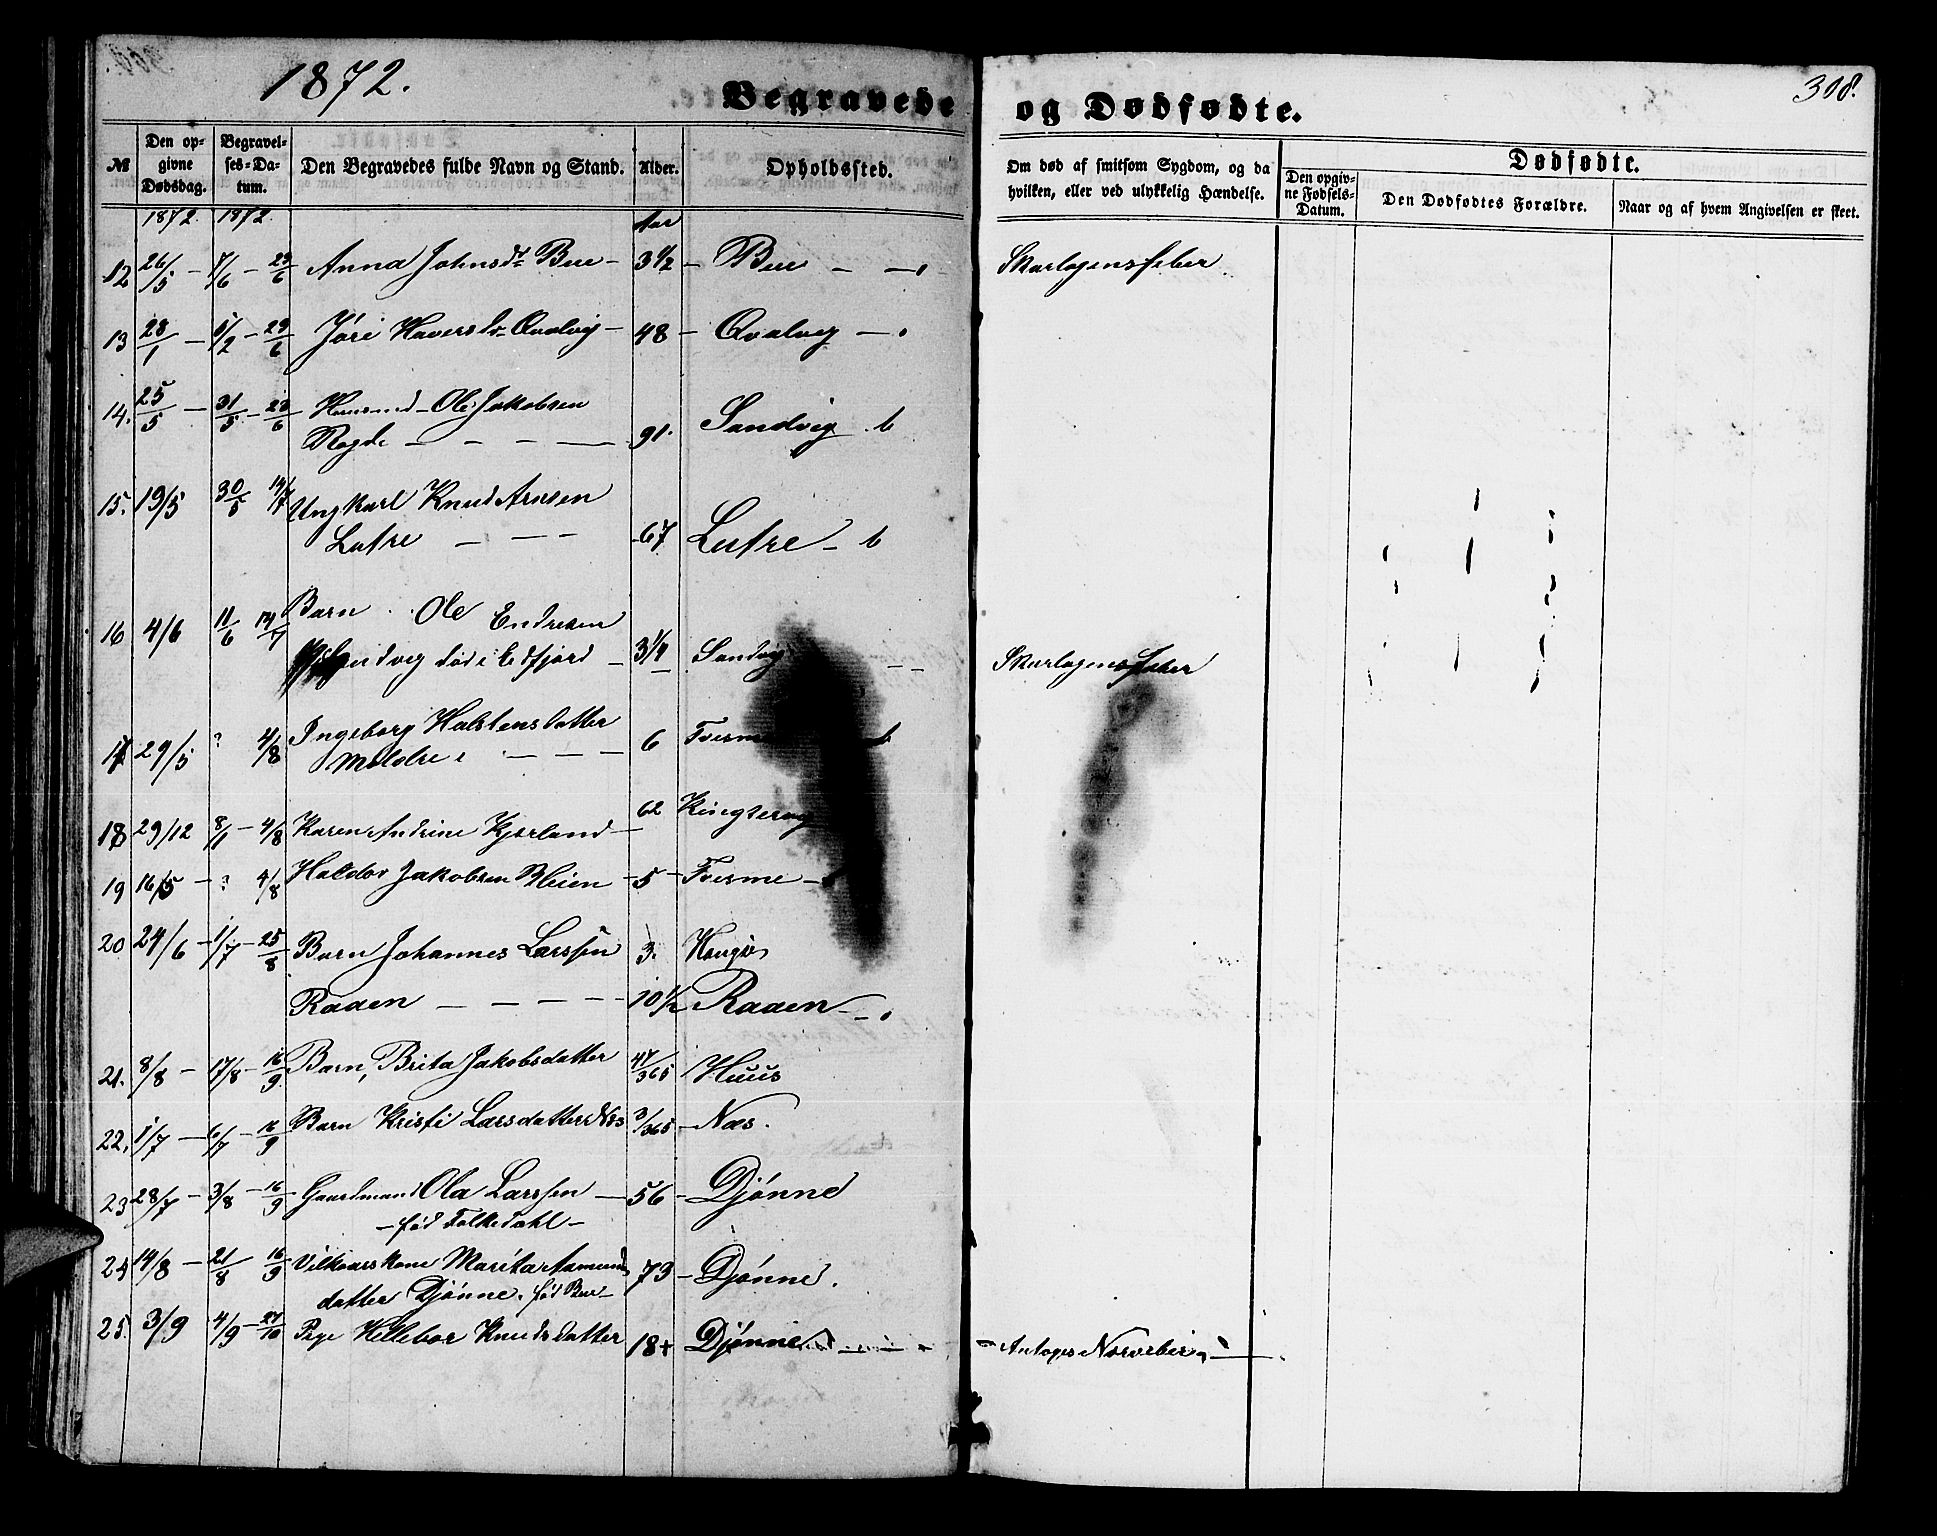 1872.
Begravede og Dødfødte.
308.
№ Den opgivne Dødsdag. Begravelses-Datum. Den Begravedes fulde Navn og Stand. Alder. Opholdssted. Om død af smitsom Sygdom, og da hvilken, eller ved ulykkelig Hændelse. Dødfødte.
Den opgivne Fødsels-Datum. Den Dødfødtes Forældre. Naar og af hvem Angivelsen er skeet.
1872. 1872. Aar
12 26/5 – 7/6 – 23/6 Anna Johnsdr Bue – 3 1/2 – Bue – Skarlagensfeber
13 28/1 – 5/2 – 23/6 Jóri Haversdr Qvalvig – 48 – Qvalvig –
14. 25/5 – 31/5 – 23/6 Ole Jakobsen
Rogde – – – 91. Sandvig
15. 19/5 30/5 14/7 Ungkarl Knud Arnesen
Lutre – – – 67 Lutre –
16 4/6 11/6 14/7 Barn Ole Endresen
Sandvig død i Eidfjord – 3 1/4 Sandvig – – Skarlagensfeber
17 29/5 ? 4/8 Ingeborg Halstensdatter
Moldre – – – 6 Tveisme
18 29/12 8/1 – 4/8 Karen Andrine Kjerland – 62
19 16/5 – ? 4/8 Haldor Jakobsen Meien – 5 – Tveisme –
20 24/6 – 1/7 – 25/8 Barn Johannes Larssen 3.
Raaen – – – – 10 1/2 Raaen – –
21. 8/8 – 17/8 – 16/9 Barn, Brita Jakobsdatter 47/365 Huus
22. 1/7 – 6/7 – 16/9 Barn Kristi Larsdatter Næs 3/365 – Næs.
23 28/7 – 3/8 – 16/9 Gaardmand Ola Larssen – 56 – Djønne
– fød Folkedahl –
24 14/8 – 21/8 16/9 Vilkaarskone Marita Aamunds
datter Djønne. fød Bue – 73 – Djønne.
25. 3/9 4/9 – 27/10 Pige Hellebor Knudsdatter 18 + Djønne – – – Antages Nervefeber